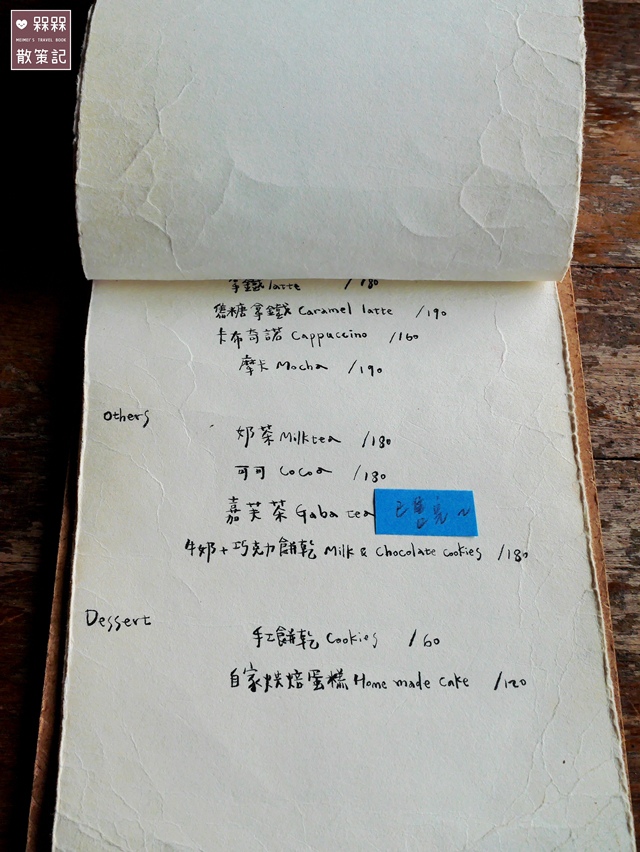 槑槑
MEIMEI'S TRAVEL BOOK
散策記
拿鐵 latte /180
焦糖拿鐵 Caramel latte /190
卡布奇諾 Cappuccino /160
摩卡 Mocha /190
Others
奶茶 Milktea /180
可可 Cocoa /180
嘉芙茶 Gaba tea 已售完~
牛奶+巧克力餅乾 Milk & Chocolate cookies /180
Dessert
手工餅乾 Cookies /60
自家烘焙蛋糕 Home made cake /120